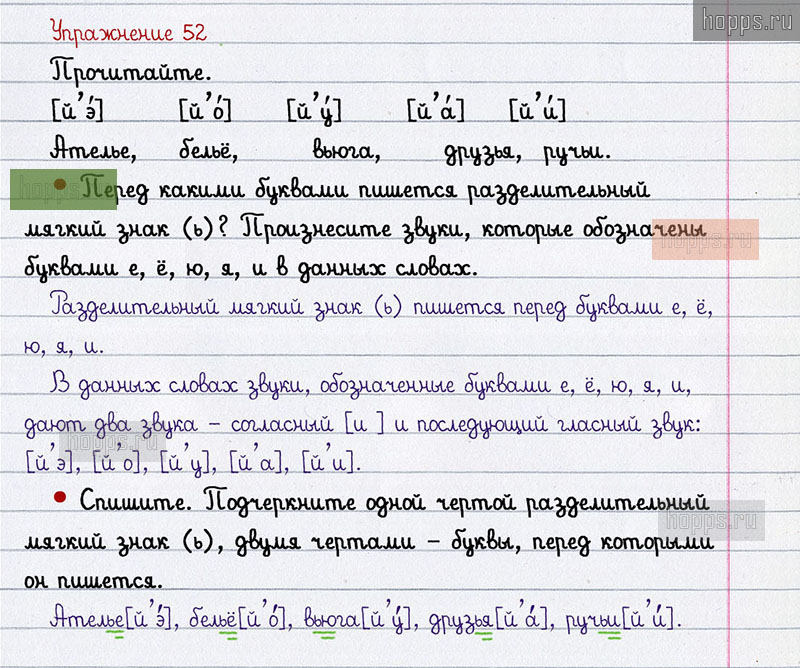 hopps.ru
Упражнение 52
Прочитайте.
[й’э́] [й’о́] [й’у́] [й’а́] [й’и́]
Ателье, бельё, вьюга, друзья, ручьи.
hopps.ru
• Перед какими буквами пишется разделительный
мягкий знак (ь)? Произнесите звуки, которые обозначены
hopps.ru
буквами е, ё, ю, я, и в данных словах.
Разделительный мягкий знак (ь) пишется перед буквами е, ё,
ю, я, и.
В данных словах звуки, обозначенные буквами е, ё, ю, я, и,
дают два звука – согласный [и ] и последующий гласный звук:
hopps.ru
[й’э], [й’о], [й’у], [й’а], [й’и].
• Спишите. Подчеркните одной чертой разделительный
hopps.ru
мягкий знак (ь), двумя чертами – буквы, перед которыми
он пишется.
Ателье[й’э́], бельё[й’о́], вьюга[й’у́], друзья[й’а́], ручьи[й’и́].